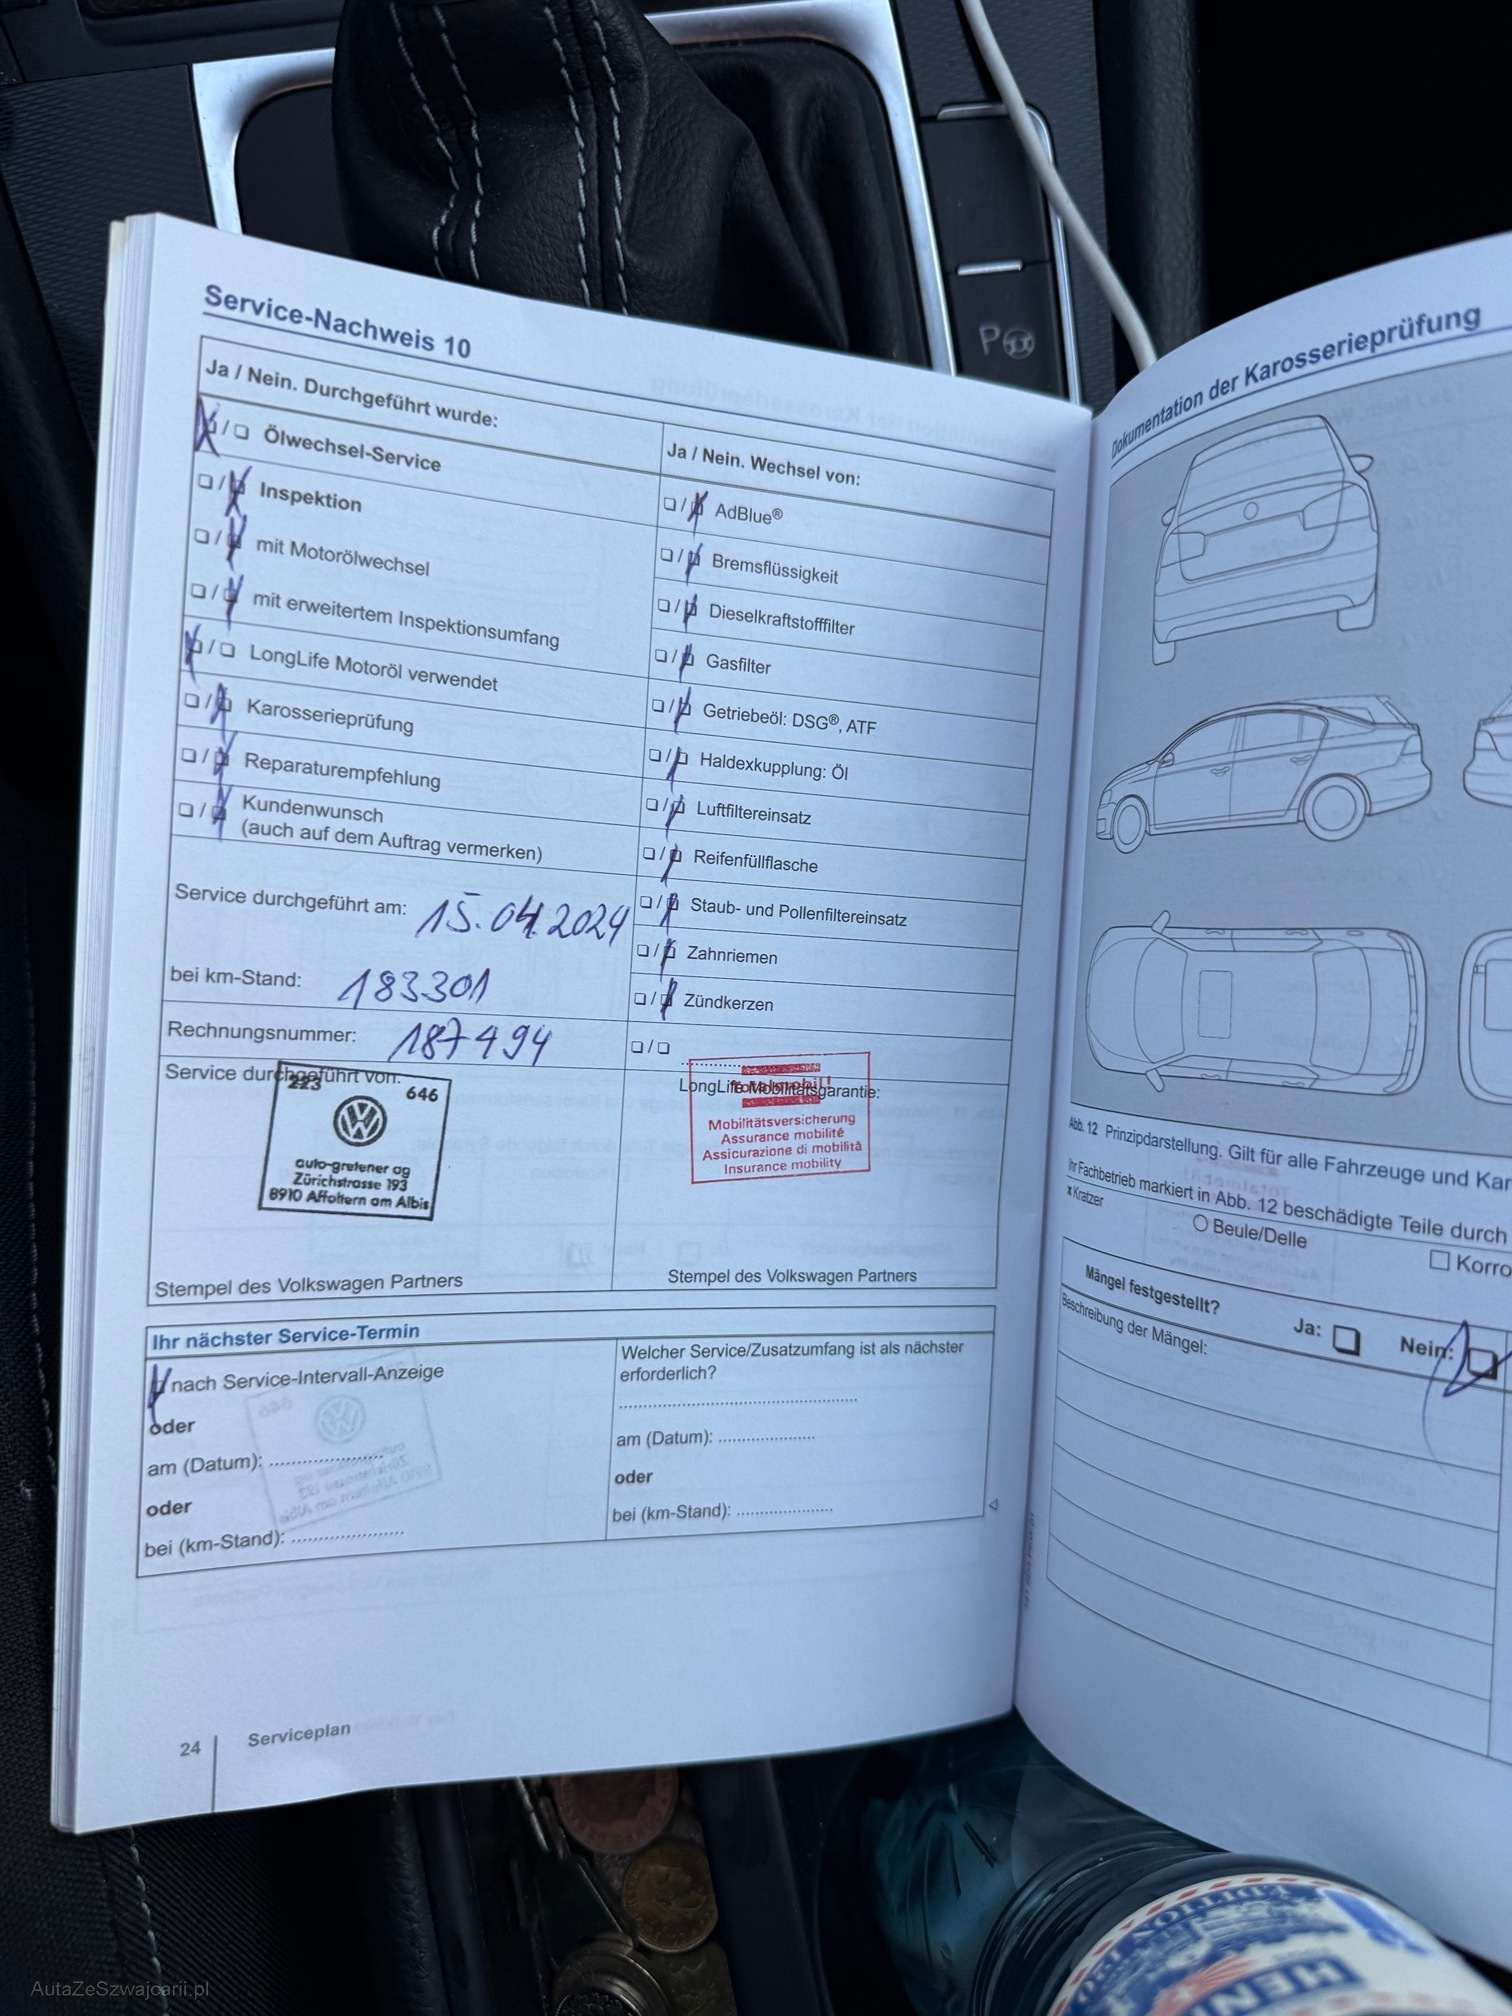 Service-Nachweis 10
Ja / Nein. Durchgeführt wurde:
Ölwechsel-Service
Inspektion
mit Motorölwechsel
mit erweitertem Inspektionsumfang
LongLife Motoröl verwendet
Karosserieprüfung
Reparaturempfehlung
Kundenwunsch
(auch auf dem Auftrag vermerken)
Service durchgeführt am: 15.04.2024
bei km-Stand: 183301
Rechnungsnummer: 187494
Service durchgeführt von:
223 646
auto-gretener ag
Zürichstrasse 193
8910 Affoltern am Albis
Stempel des Volkswagen Partners
Ja / Nein. Wechsel von:
AdBlue®
Bremsflüssigkeit
Dieselkraftstofffilter
Gasfilter
Getriebeöl: DSG®, ATF
Haldexkupplung: Öl
Luftfiltereinsatz
Reifenfüllflasche
Staub- und Pollenfiltereinsatz
Zahnriemen
Zündkerzen
LongLife Mobilitätsgarantie:
Totalmobil!
Mobilitätsversicherung
Assurance mobilité
Assicurazione di mobilità
Insurance mobility
Stempel des Volkswagen Partners
Ihr nächster Service-Termin
nach Service-Intervall-Anzeige
oder
am (Datum):
oder
bei (km-Stand):
Welcher Service/Zusatzumfang ist als nächster
erforderlich?
am (Datum):
oder
bei (km-Stand):
24 Serviceplan
P
Dokumentation der Karosserieprüfung
Abb. 12 Prinzipdarstellung. Gilt für alle Fahrzeuge und Kar
Ihr Fachbetrieb markiert in Abb. 12 beschädigte Teile durch
x Kratzer
Beule/Delle
Korro
Mängel festgestellt? Ja: Nein:
Beschreibung der Mängel:
AutaZeSzwajcarii.pl